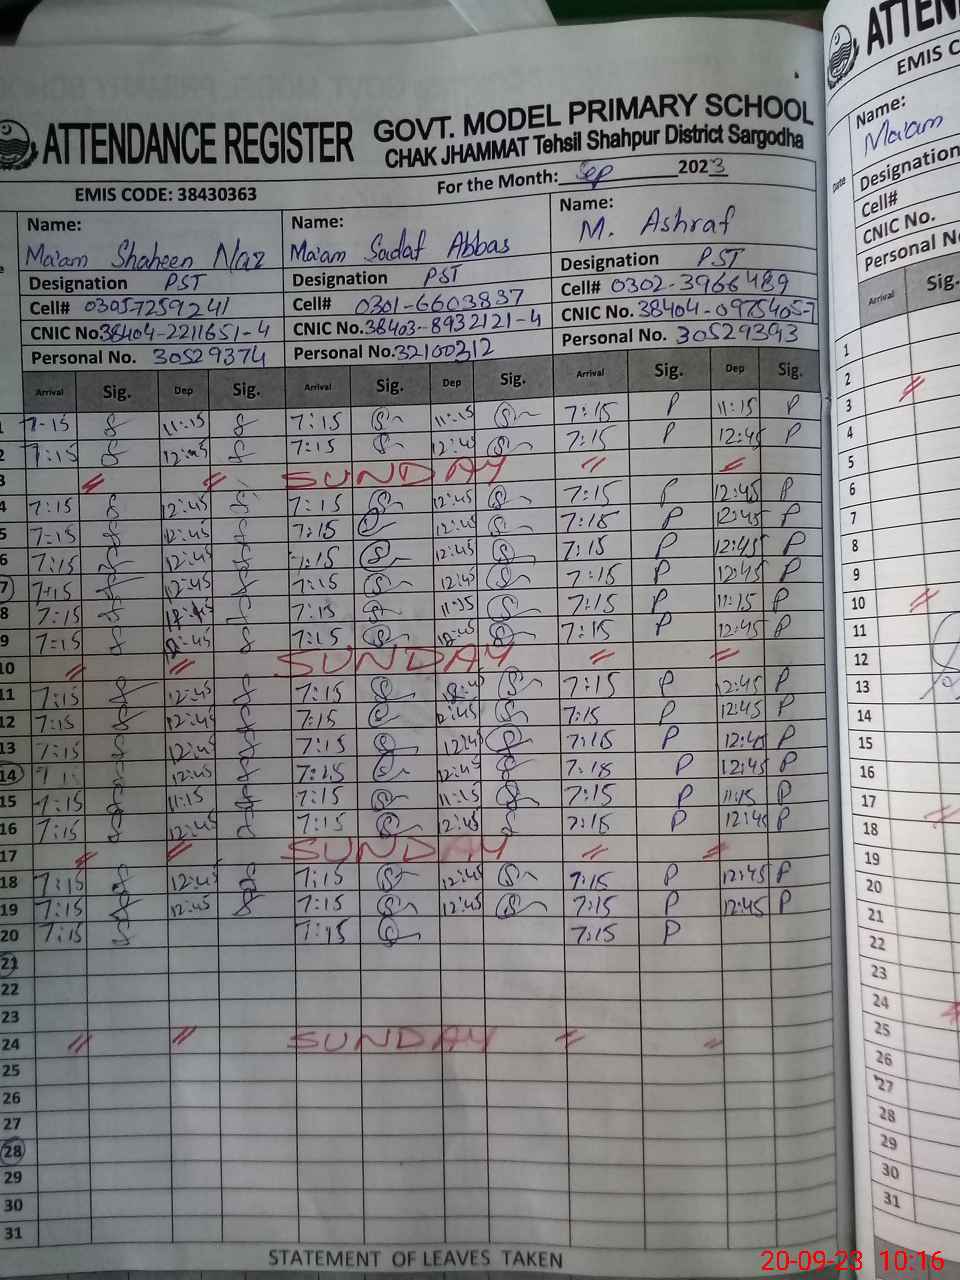 ATTENDANCE REGISTER GOVT. MODEL PRIMARY SCHOOL
CHAK JHAMMAT Tehsil Shahpur District Sargodha
EMIS CODE: 38430363 For the Month: Sep 2023
Name: Name: Name:
Ma'am Shaheen Naz Ma'am Sadaf Abbas M. Ashraf
Designation PST Designation PST Designation PST
Cell# Cell# 0301-6603837 Cell# 0302-3966489
CNIC No. 38404-2211651-4 CNIC No. 38403-8932121-4 CNIC No.
Personal No. 30529374 Personal No. 32100312 Personal No. 30529393
Arrival Sig. Dep Sig. Arrival Sig. Dep Sig. Arrival Sig. Dep Sig.
1 7-15 11:15 7:15 11:15 7:15 P 11:15 P
2 7:15 7:15 12:45 7:15 P 12:45 P
3 SUNDAY
4 7:15 12:45 7:15 12:45 7:15 P 12:45 P
5 7:15 12:45 7:15 12:45 P 12:45 P
6 7:15 12:45 7:15 12:45 7:15 P 12:45 P
7 7:15 12:45 7:15 12:45 7:15 P 12:45 P
8 7:15 7:15 11:15 7:15 P 11:15 P
9 7:15 7:15 12:45 7:15 P 12:45 P
10 SUNDAY
11 7:15 12:45 7:15 7:15 P 12:45 P
12 7:15 12:45 7:15 12:45 7:15 P 12:45 P
13 7:15 12:45 7:15 12:45 7:15 P 12:45 P
14 12:45 7:15 12:45 P 12:45 P
15 7:15 11:15 7:15 11:15 7:15 P 11:15 P
16 7:15 12:45 7:15 12:45 7:15 P 12:45 P
17 SUNDAY
18 7:15 12:45 7:15 12:45 7:15 P 12:45 P
19 7:15 12:45 7:15 12:45 7:15 P 12:45 P
20 7:15 7:15 7:15 P
21
22
23
24 SUNDAY
25
26
27
28
29
30
31
STATEMENT OF LEAVES TAKEN
EMIS
Name:
Ma'am
Designation
Cell#
CNIC No.
Personal
Date
Arrival Sig.
1
2
3
4
5
6
7
8
9
10
11
12
13
14
15
16
17
18
19
20
21
22
23
24
25
26
27
28
29
30
31
20-09-23 10:16